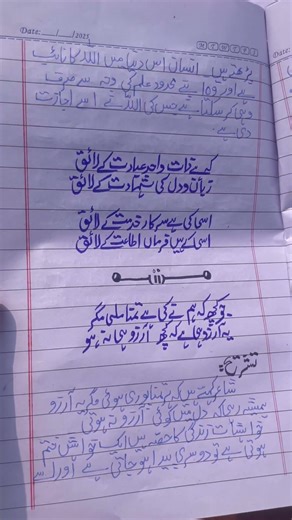 Date: __/__/202__
انسان اس دنیا میں اللہ کا نائب
ہے اور وہ اپنے محدود علم کی وجہ سے صرف
وہی کر سکتا ہے جس کی اللہ نے اسے اجازت
دی ہے۔
کہ ہے ذات واحد عبادت کے لائق
زبان و دل کی شہادت کے لائق
اسی کی ہے سرکار خدمت کے لائق
اسی کے ہیں فرماں اطاعت کے لائق
11
تو کچھ کہ ہم نے کی ہے تمنا ملی مگر
یہ آرزو رہی ہے کہ کچھ آرزو ہی نہ ہو
تشریح:
شاعر کہتے ہیں کہ ہر تمنا پوری ہوئی مگر یہ آرزو
ہمیشہ رہی کہ دل میں کوئی آرزو نہ ہوتی
خواہشات زندگی کا حصہ ہیں ایک خواہش ختم
ہوتی ہے تو دوسری پیدا ہو جاتی ہے اور اسے